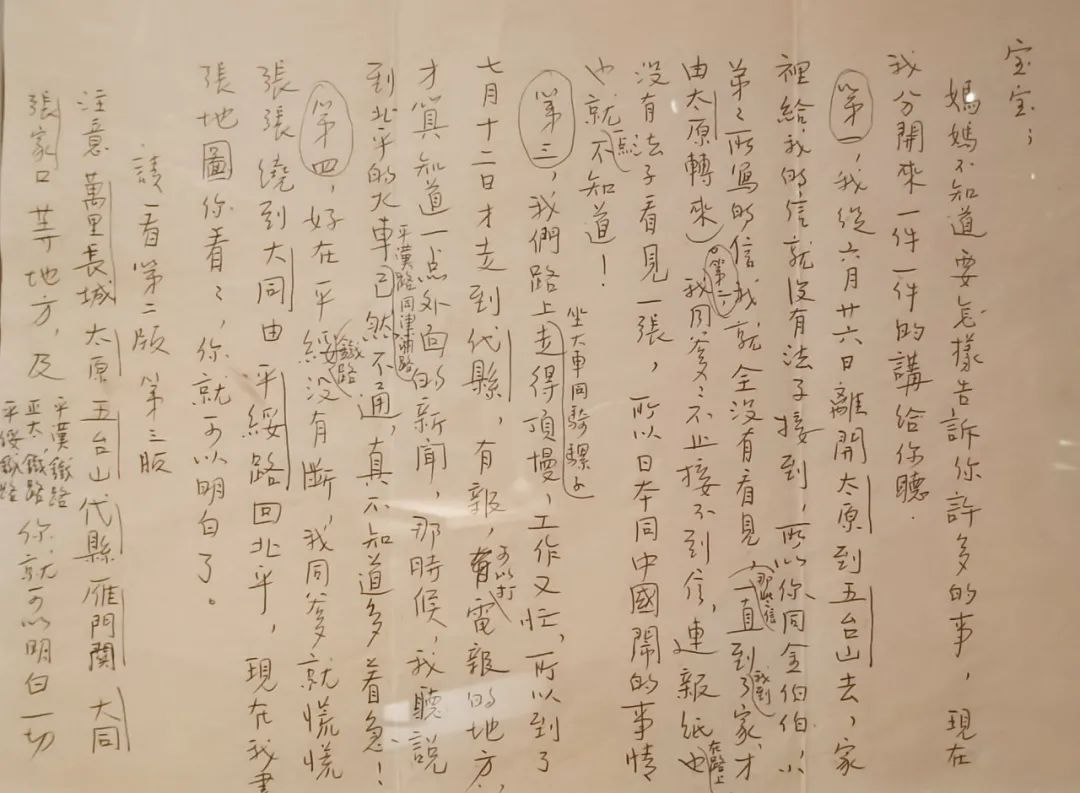 宝宝；
媽媽不知道要怎樣告訴你許多的事，現在
我分開來一件一件的講給你聽．
第一，我從六月廿六日離開太原到五台山去，家
裡給我的信就沒有法子接到，所以你同金伯伯，小
弟々所寫的信我就全沒有看見（那些信一直到我到了家，才
由太原轉來）。第二，我同爹々不止接不到信，連報紙也在路上
没有法子看見一張，所以日本同中國鬧的事情
也就一点不知道！
第三，我們路上坐大車同騎騾子走得頂慢，工作又忙，所以到了
七月十二日才走到代縣，有報，可以打電報的地方，
才算知道一点外面的新聞，那時候，我聽説
到北平的火車平漢路同津浦路已然不通，真不知道多着急！
第四，好在平綏鐵路没有断，我同爹就慌慌
張張繞到大同由平綏路回北平，現在我畫
張地圖你看々，你就可以明白了。
請看第二版 第三版
注意萬里長城 太原 五台山 代縣 雁門關 大同
張家口等地方，及平漢鐵路 正太鐵路 平綏鐵路 你就可以明白一切